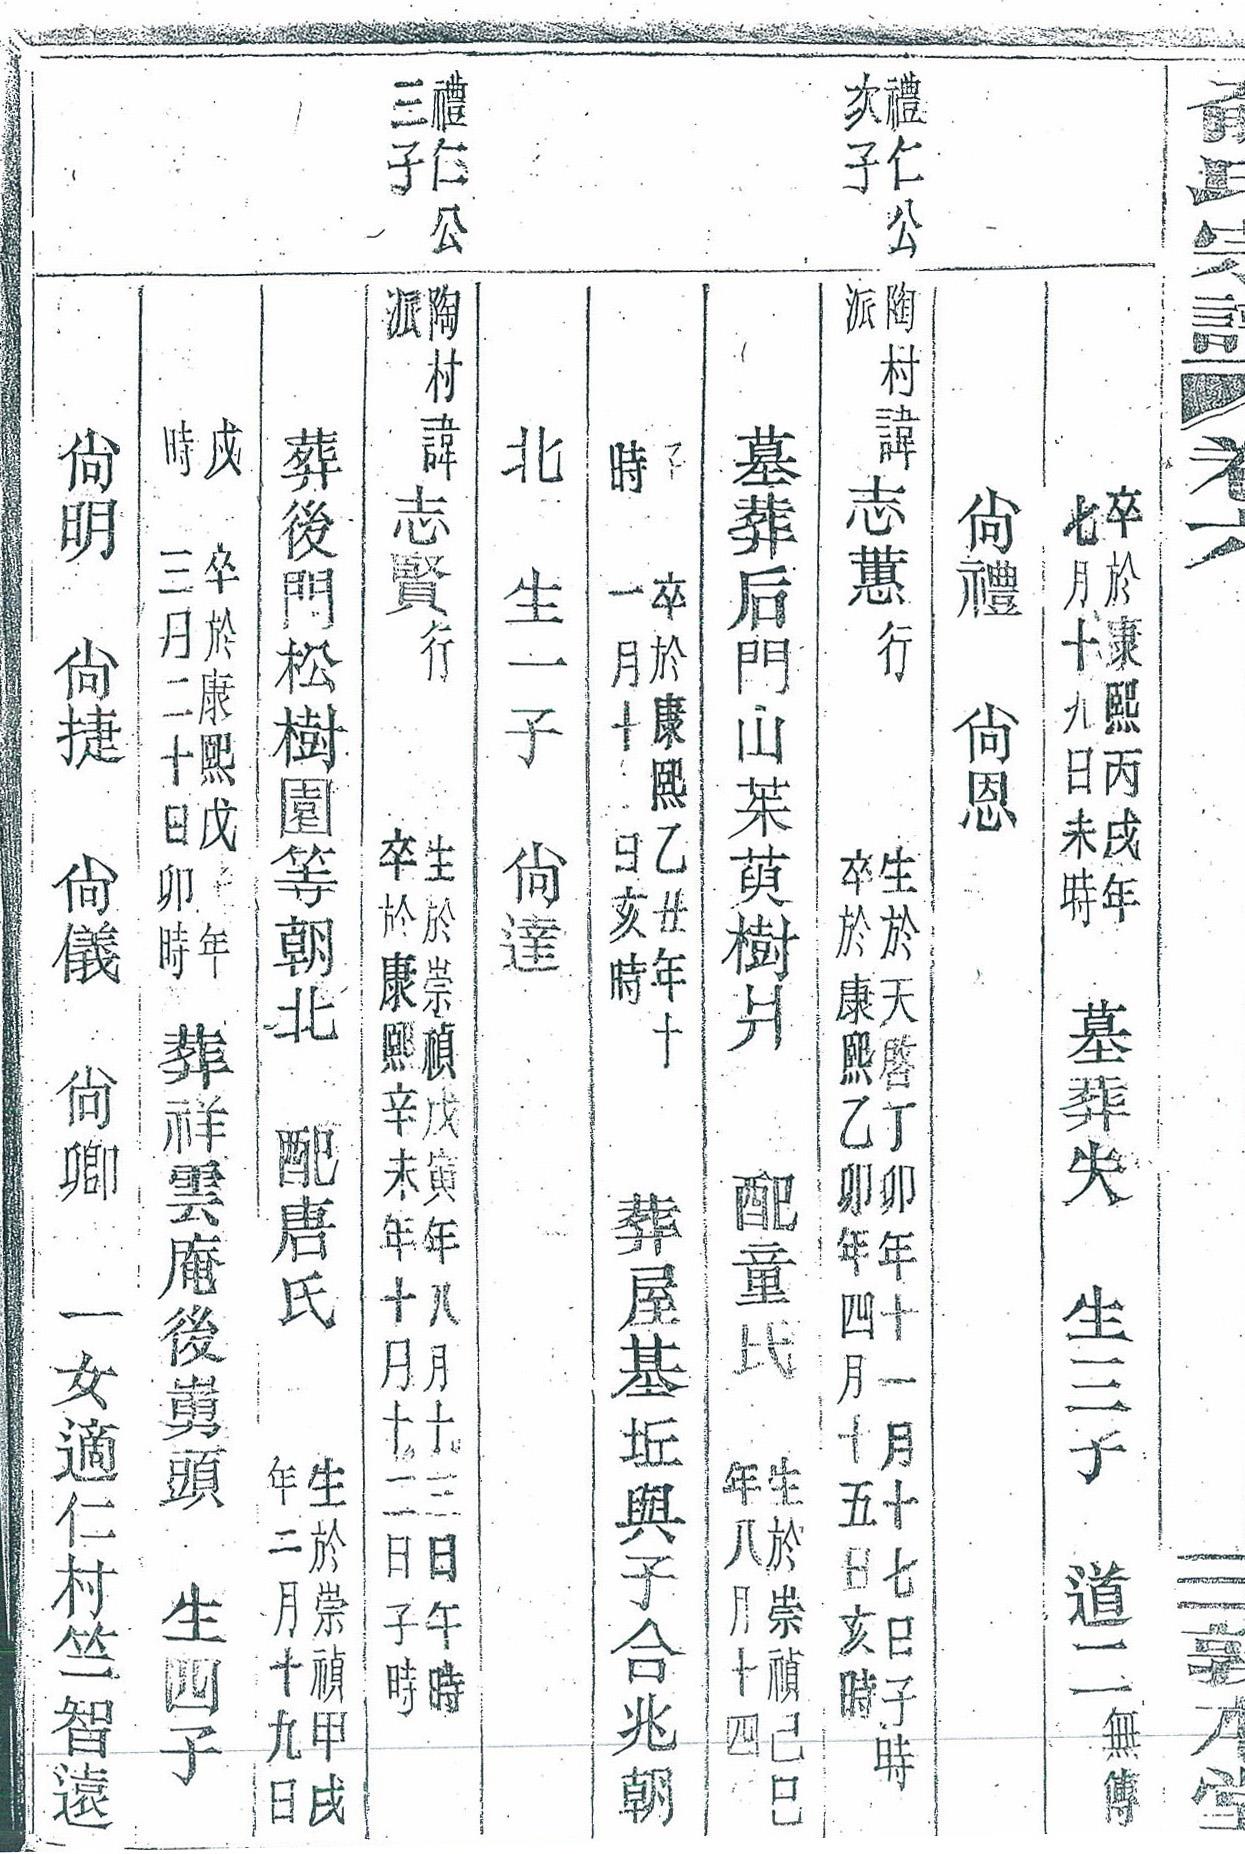 俞氏宗譜 卷六 敦本堂
卒於康熙丙戌年
七月十九日未時
墓葬失 生三子 道二
無傳
尙禮 尙恩
禮仁公
次子
陶村
派
諱志蕙行
生於天啓丁卯年十一月十七日子時
卒於康熙乙卯年四月十五日亥時
墓葬后門山茱萸樹爿 配童氏
生於崇禎己巳
年八月十四
子
時
卒於康熙乙丑年十
一月十 日亥時
葬屋基坵與子合兆朝
北 生一子 尙達
禮仁公
三子
陶村
派
諱志賢行
生於崇禎戊寅年八月十三日午時
卒於康熙辛未年十月十二日子時
葬後門松樹園等朝北 配唐氏
生於崇禎甲戌
年二月十九日
戌
時
卒於康熙戊 年
三月二十日卯時
葬祥雲庵後嶴頭 生四子
尙明 尙捷 尙儀 尙卿 一女適仁村竺智遠